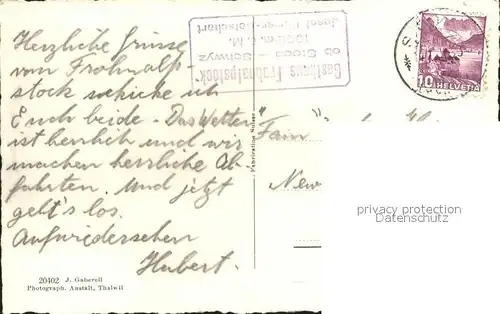 Herzliche Grüsse
von Frohnalp-
stock schicke ich
Euch beide. Das Wetter
ist herrlich und wir
machen herrliche Ab
fahrten. Und jetzt
geht's los.
Aufwiedersehen
Hubert.
20402 J. Gaberell
Photograph. Anstalt, Thalwil
Gasthaus Frohnalpstock
ob Stoos - Schwyz
Fabrication Suisse
10 HELVETIA
Fam
New
privacy protection
Datenschutz